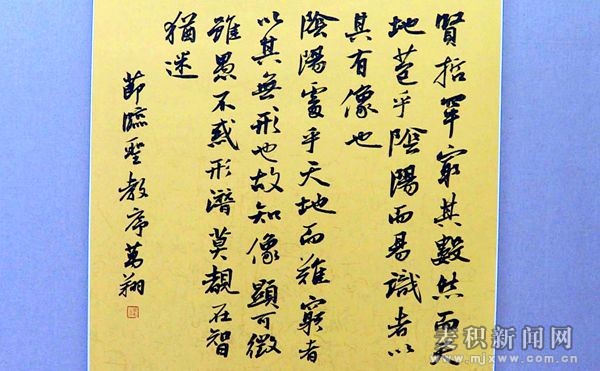 賢哲罕窮其數然而天
地苞乎陰陽而易識者以
其有像也
陰陽處乎天地而難窮者
以其無形也故知像顯可徵
雖愚不惑形潛莫覩在智
猶迷
節臨聖教序萬翔
麦积新闻网
www.mjxww.com.cn